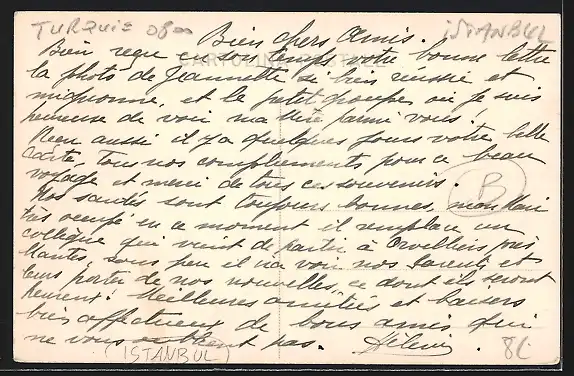 TURQUIE 0800
ISTANBUL
Bien chers Amis.
Bien reçu en son temps votre bonne lettre
la photo de Jeannette si bien réussie et
mignonne, et le petit groupe, où je suis
heureuse de voir ma tête parmi vous!
Reçu aussi il y a quelques jours votre belle
carte, tous nos compliments pour ce beau
voyage et merci de tous ces souvenirs.
Nos santés sont toujours bonnes, mon Mari
très occupé en ce moment il remplace un
collègue qui vient de partir à près
Mantes, sous peu il ira voir nos parents et
leurs porter de nos nouvelles, ce dont ils seront
heureux! Meilleures amitiés et baisers
bien affectueux de bons amis qui
ne vous oublient pas. Hélène
(ISTANBUL)
B
8L